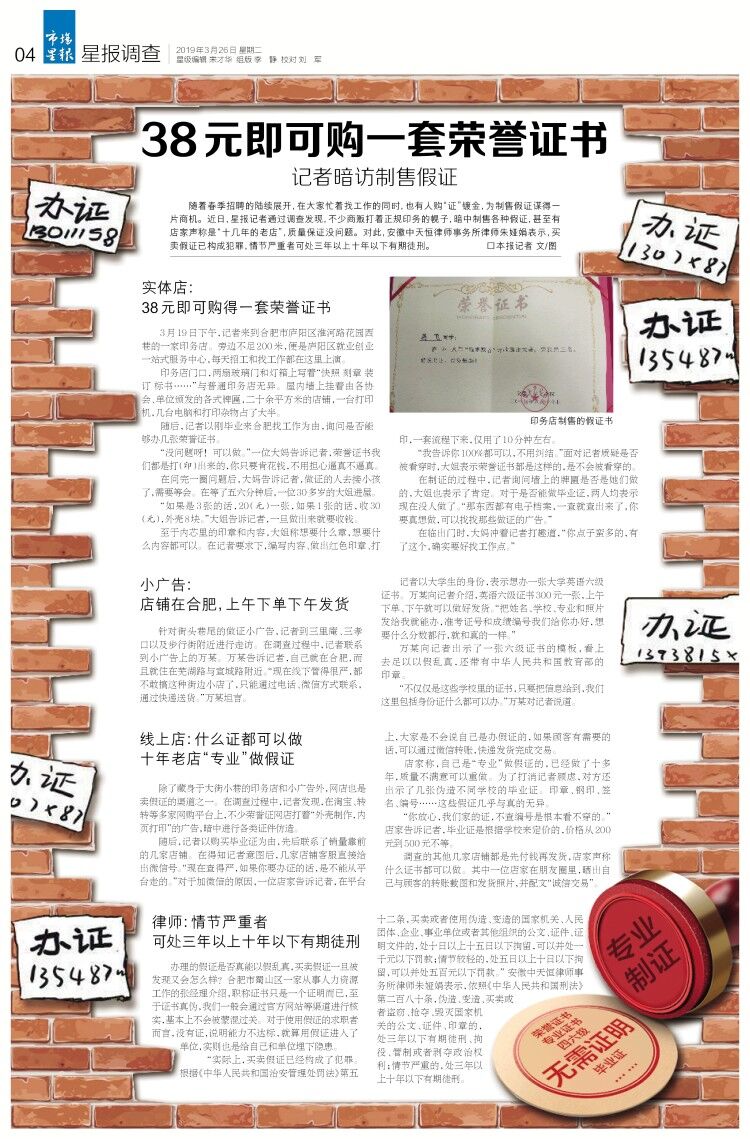 04
市场
星报
星报调查
2019年3月26日 星期二
星级编辑 宋才华 组版 李 静 校对 刘 军
38元即可购一套荣誉证书
记者暗访制售假证
随着春季招聘的陆续展开,在大家忙着找工作的同时,也有人购“证”镀金,为制售假证谋得一
片商机。近日,星报记者通过调查发现,不少商贩打着正规印务的幌子,暗中制售各种假证,甚至有
店家声称是“十几年的老店”,质量保证没问题。对此,安徽中天恒律师事务所律师朱娅娟表示,买
卖假证已构成犯罪,情节严重者可处三年以上十年以下有期徒刑。 □本报记者 文/图
办证
13011158
办证
1307×87
办证
13548711
实体店:
38元即可购得一套荣誉证书
3月19日下午,记者来到合肥市庐阳区淮河路花园西
巷的一家印务店。旁边不足200米,便是庐阳区就业创业
一站式服务中心,每天招工和找工作都在这里上演。
印务店门口,两扇玻璃门和灯箱上写着“快照 刻章 装
订 标书……”与普通印务店无异。屋内墙上挂着由各协
会、单位颁发的各式牌匾,二十余平方米的店铺,一台打印
机,几台电脑和打印杂物占了大半。
随后,记者以刚毕业来合肥找工作为由,询问是否能
够办几张荣誉证书。
“没问题呀!可以做。”一位大妈告诉记者,荣誉证书我
们都是打(印)出来的,你只要肯花钱,不用担心逼真不逼真。
在问完一圈问题后,大妈告诉记者,做证的人去接小孩
了,需要等会。在等了五六分钟后,一位30多岁的大姐进屋。
“如果是3张的话,20(元)一张,如果1张的话,收30
(元),外壳8块。”大姐告诉记者,一旦做出来就要收钱。
至于内芯里的印章和内容,大姐称想要什么章,想要什
么内容都可以。在记者要求下,编写内容、做出红色印章、打
荣誉证书
印务店制售的假证书
印,一套流程下来,仅用了10分钟左右。
“我告诉你100%都可以,不用纠结。”面对记者质疑是否
被看穿时,大姐表示荣誉证书都是这样的,是不会被看穿的。
在制证的过程中,记者询问墙上的牌匾是否是她们做
的,大姐也表示了肯定。对于是否能做毕业证,两人均表示
现在没人做了。“那东西都有电子档案,一查就查出来了,你
要真想做,可以找找那些做证的广告。”
在临出门时,大妈冲着记者打趣道,“你点子蛮多的,有
了这个,确实要好找工作点。”
小广告:
店铺在合肥,上午下单下午发货
针对街头巷尾的做证小广告,记者到三里庵、三孝
口以及步行街附近进行走访。在调查过程中,记者联系
到小广告上的万某。万某告诉记者,自己就在合肥,而
且就住在芜湖路与宣城路附近。“现在线下管得很严,都
不敢搞这种街边小店了,只能通过电话、微信方式联系,
通过快递送货。”万某坦言。
记者以大学生的身份,表示想办一张大学英语六级
证书。万某向记者介绍,英语六级证书300元一张,上午
下单、下午就可以做好发货。“把姓名、学校、专业和照片
发给我就能办,准考证号和成绩编号我们给你办好,想
要什么分数都行,就和真的一样。”
万某向记者出示了一张六级证书的模板,看上
去足以以假乱真,还带有中华人民共和国教育部的
印章。
“不仅仅是这些学校里的证书,只要把信息给到,我们
这里包括身份证什么都可以办。”万某对记者说道。
办证
1393815×
线上店:什么证都可以做
十年老店“专业”做假证
除了藏身于大街小巷的印务店和小广告外,网店也是
卖假证的渠道之一。在调查过程中,记者发现,在淘宝、转
转等多家网购平台上,不少荣誉证网店打着“外壳制作,内
页打印”的广告,暗中进行各类证件伪造。
随后,记者以购买毕业证为由,先后联系了销量靠前
的几家店铺。在得知记者意图后,几家店铺客服直接给
出微信号。“现在查得严,如果你要办证的话,是不能从平
台走的。”对于加微信的原因,一位店家告诉记者,在平台
上,大家是不会说自己是办假证的,如果顾客有需要的
话,可以通过微信转账,快递发货完成交易。
店家称,自己是“专业”做假证的,已经做了十多
年,质量不满意可以重做。为了打消记者顾虑,对方还
出示了几张伪造不同学校的毕业证。印章、钢印、签
名、编号……这些假证几乎与真的无异。
“你放心,我们家的证,不查编号是根本看不穿的。”
店家告诉记者,毕业证是根据学校来定价的,价格从200
元到500元不等。
调查的其他几家店铺都是先付钱再发货,店家声称
什么证书都可以做。其中一位店家在朋友圈里,晒出自
己与顾客的转账截图和发货照片,并配文“诚信交易”。
办证
07×87
律师:情节严重者
可处三年以上十年以下有期徒刑
办理的假证是否真能以假乱真,买卖假证一旦被
发现又会怎么样?合肥市蜀山区一家从事人力资源
工作的张经理介绍,职称证书只是一个证明而已,至
于证书真伪,我们一般会通过官方网站等渠道进行核
实,基本上不会被蒙混过关。对于使用假证的求职者
而言,没有证,说明能力不达标,就算用假证进入了
单位,实则也是给自己和单位埋下隐患。
“实际上,买卖假证已经构成了犯罪。
根据《中华人民共和国治安管理处罚法》第五
十二条,买卖或者使用伪造、变造的国家机关、人民
团体、企业、事业单位或者其他组织的公文、证件、证
明文件的,处十日以上十五日以下拘留,可以并处一
千元以下罚款;情节较轻的,处五日以上十日以下拘
留,可以并处五百元以下罚款。”安徽中天恒律师事
务所律师朱娅娟表示,依照《中华人民共和国刑法》
第二百八十条,伪造、变造、买卖或
者盗窃、抢夺、毁灭国家机
关的公文、证件、印章的,
处三年以下有期徒刑、拘
役、管制或者剥夺政治权
利;情节严重的,处三年以
上十年以下有期徒刑。
办证
13548711
专业
制证
荣誉证书
专业证书
四六级
无需证明
毕业证
……